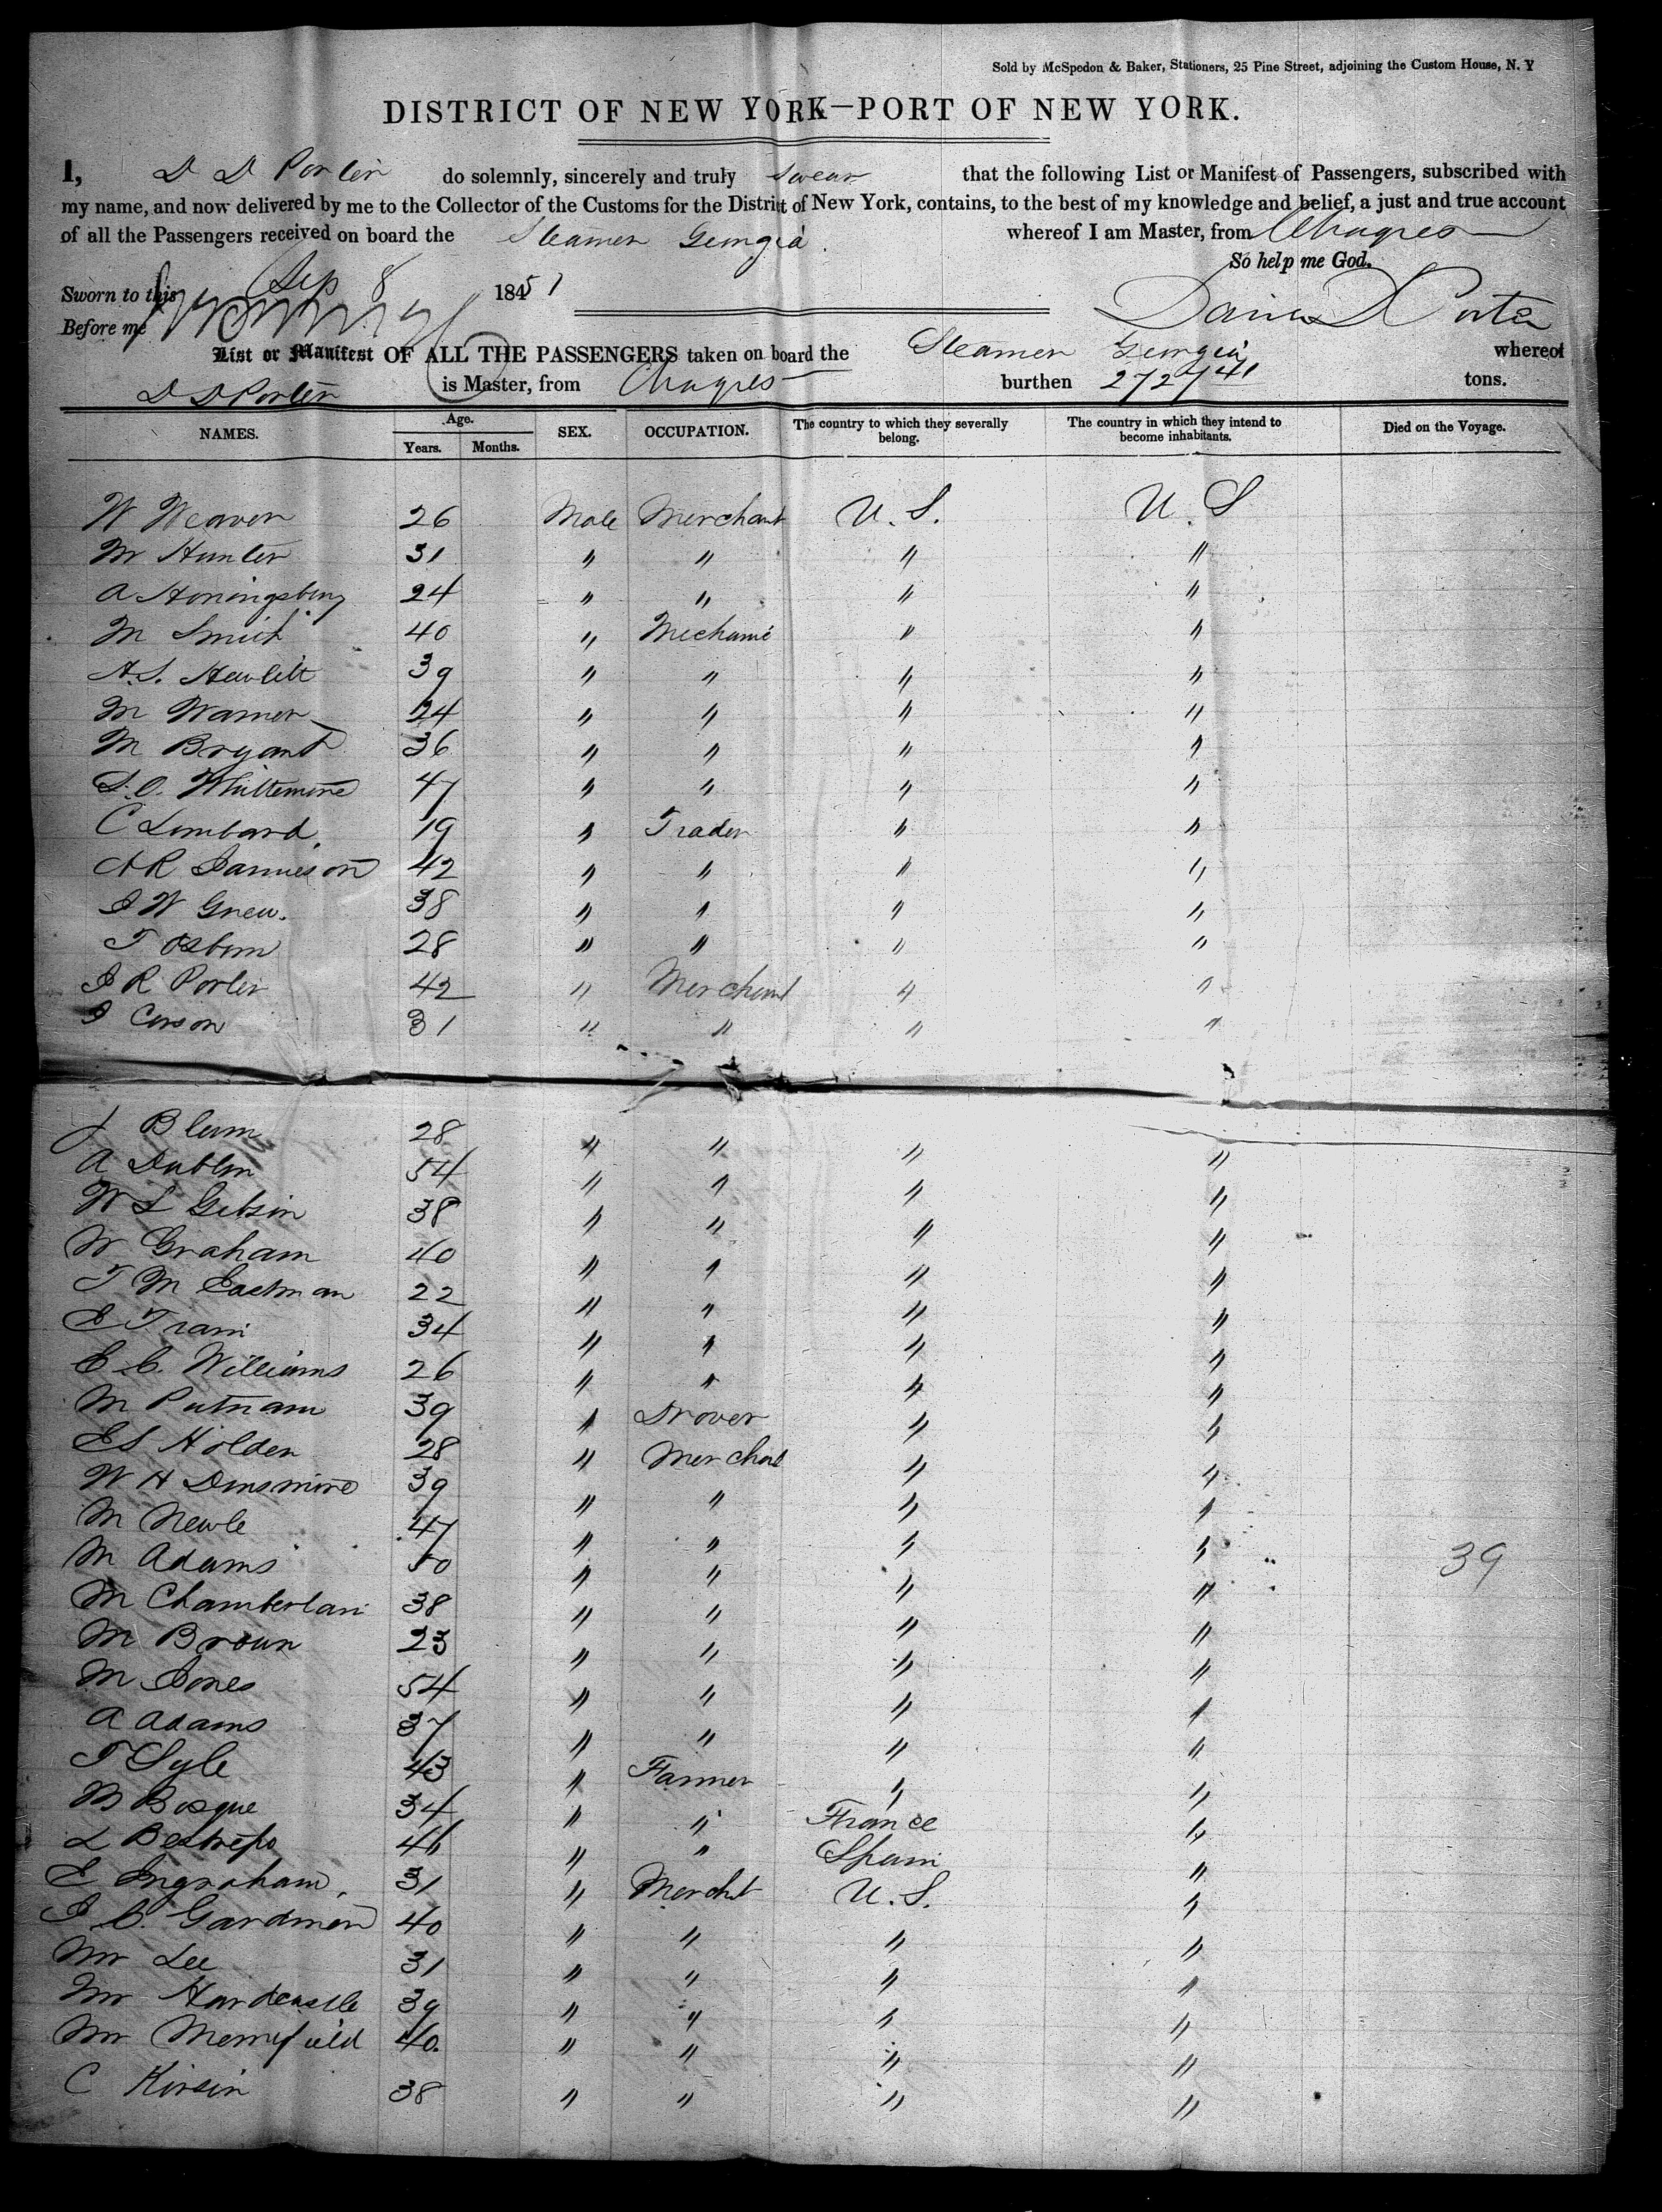 Sold by McSpedon & Baker, Stationers, 25 Pine Street, adjoining the Custom House, N. Y
DISTRICT OF NEW YORK—PORT OF NEW YORK.
I, D D Porter do solemnly, sincerely and truly swear that the following List or Manifest of Passengers, subscribed with
my name, and now delivered by me to the Collector of the Customs for the District of New York, contains, to the best of my knowledge and belief, a just and true account
of all the Passengers received on board the Steamer Georgia whereof I am Master, from Chagres
So help me God.
Sworn to this Sep 8 18451
Before me
David D Porter
List or Manifest OF ALL THE PASSENGERS taken on board the Steamer Georgia whereof
D D Porter is Master, from Chagres burthen 2727 41 tons.
NAMES. Age. Years. Months. SEX. OCCUPATION. The country to which they severally belong. The country in which they intend to become inhabitants. Died on the Voyage.
W Weaver 26 Male Merchant U. S. U. S
Mr Hunter 31 " " " "
A Honingsberg 24 " " " "
M Smith 40 " Mechanic " "
A. S. Hewlett 39 " " " "
M Warner 24 " " " "
M Bryant 36 " " " "
S. O. Whittemore 47 " " " "
C Lombard. 19 " Trader " "
A R Jamieson 42 " " " "
J W Grew. 38 " " " "
T Osborn 28 " " " "
J R Porter 42 " Merchant " "
J Carson 31 " " " "
J Blum 28 " " " "
A Dublin 54 " " " "
W L Gibson 38 " " " "
W Graham 40 " " " "
T M Eastman 22 " " " "
E Train 34 " " " "
E C. Williams 26 " " " "
M Putnam 39 " Drover " "
E S Holden 28 " Merchat " "
W H Dinsmore 39 " " " "
M Newle 47 " " " "
M Adams 50 " " " " 39
M Chamberlain 38 " " " "
M Broun 23 " " " "
M Jones 54 " " " "
A Adams 37 " " " "
T Lyle 43 " Farmer " "
B Bosque 34 " " France "
L Bestrepo 46 " " Spain "
E Ingraham. 31 " Mercht U. S. "
J C. Gardiner 40 " " " "
Mr Lee 31 " " " "
Mr Hardcastle 39 " " " "
Mr Merryfield 40. " " " "
C Kirsin 38 " " " "